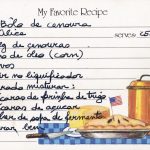 My Favorite Recipe
Bôlo de cenoura
Alice serves 15
g de cenouras
de óleo (corn)
ovos
no liquidificador
misturar:
caras de farinha de trigo
caras de açucar
de sopa de fermento
bem